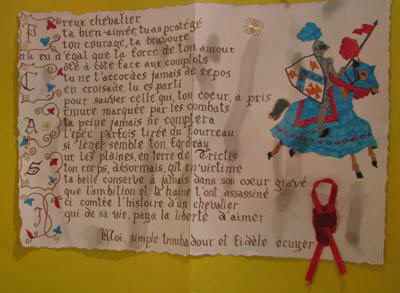 Preux chevalier
ta bien-aimée, tu as protégé
ton courage, ta bravoute
n'a eu d'égal que ta force de ton amour
Côte à côte face aux complots
tu ne t'accordes jamais de repos
en croisade, tu es parti
pour sauver celle qui, ton coeur, a pris
Armure marquée par les combats
ta peine jamais ne complera
l'épée parfois tirée du fourreau
si léger semble ton fardeau
Sur les plaines, en terre de
ton corps, désormais, gît en victime
ta belle conserve à jamais dans son coeur gravé
que l'ambition et la haine t'ont assassiné
ici contée l'histoire d'un chevalier
qui de sa vie, paya la liberté d'aimer
Moi, simple troubadour et fidèle écuyer